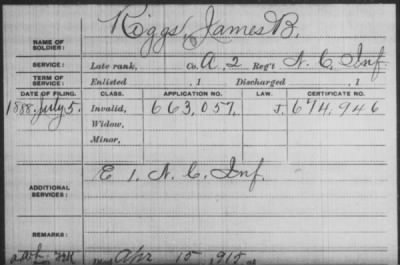 NAME OF SOLDIER: Riggs, James B.
SERVICE: Late rank, Co. A, 2 Reg't N. C. Inf
TERM OF SERVICE: Enlisted , 1 Discharged , 1
DATE OF FILING. CLASS. APPLICATION NO. LAW. CERTIFICATE NO.
1888, July 5. Invalid, 663,057, J. 674,946
Widow,
Minor,
ADDITIONAL SERVICES: E 1, N. C. Inf.
REMARKS:
Apr 15, 1915